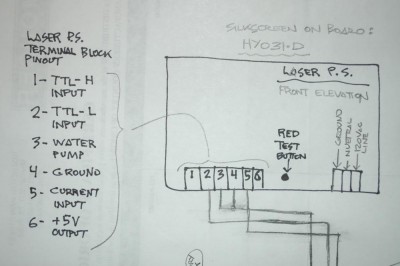 SILKSCREEN ON BOARD:
HY031-D
LASER P.S.
TERMINAL BLOCK
PINOUT
1- TTL-H
INPUT
2- TTL-L
INPUT
3- WATER
PUMP
4- GROUND
5- CURRENT
INPUT
6- +5V
OUTPUT
LASER P.S.
FRONT ELEVATION
RED
TEST
BUTTON
GROUND
NUETRAL
120VAC
LINE
1 2 3 4 5 6